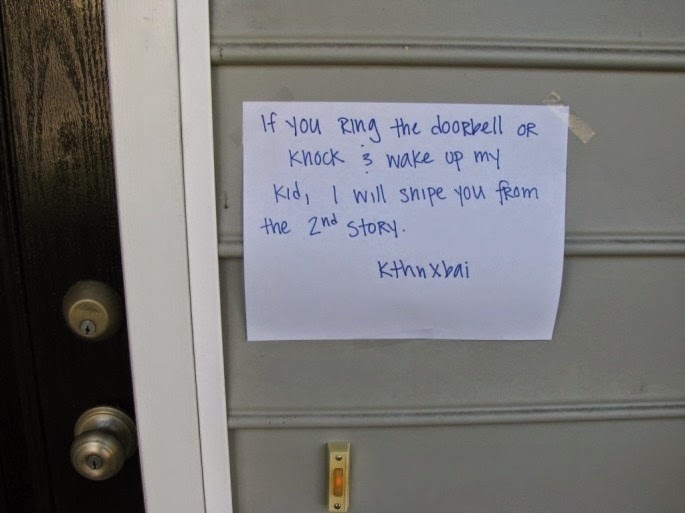 If you Ring the dooRbell OR
knock & wake up my
kid, I will snipe you from
the 2nd stoRy.
kthnxbai